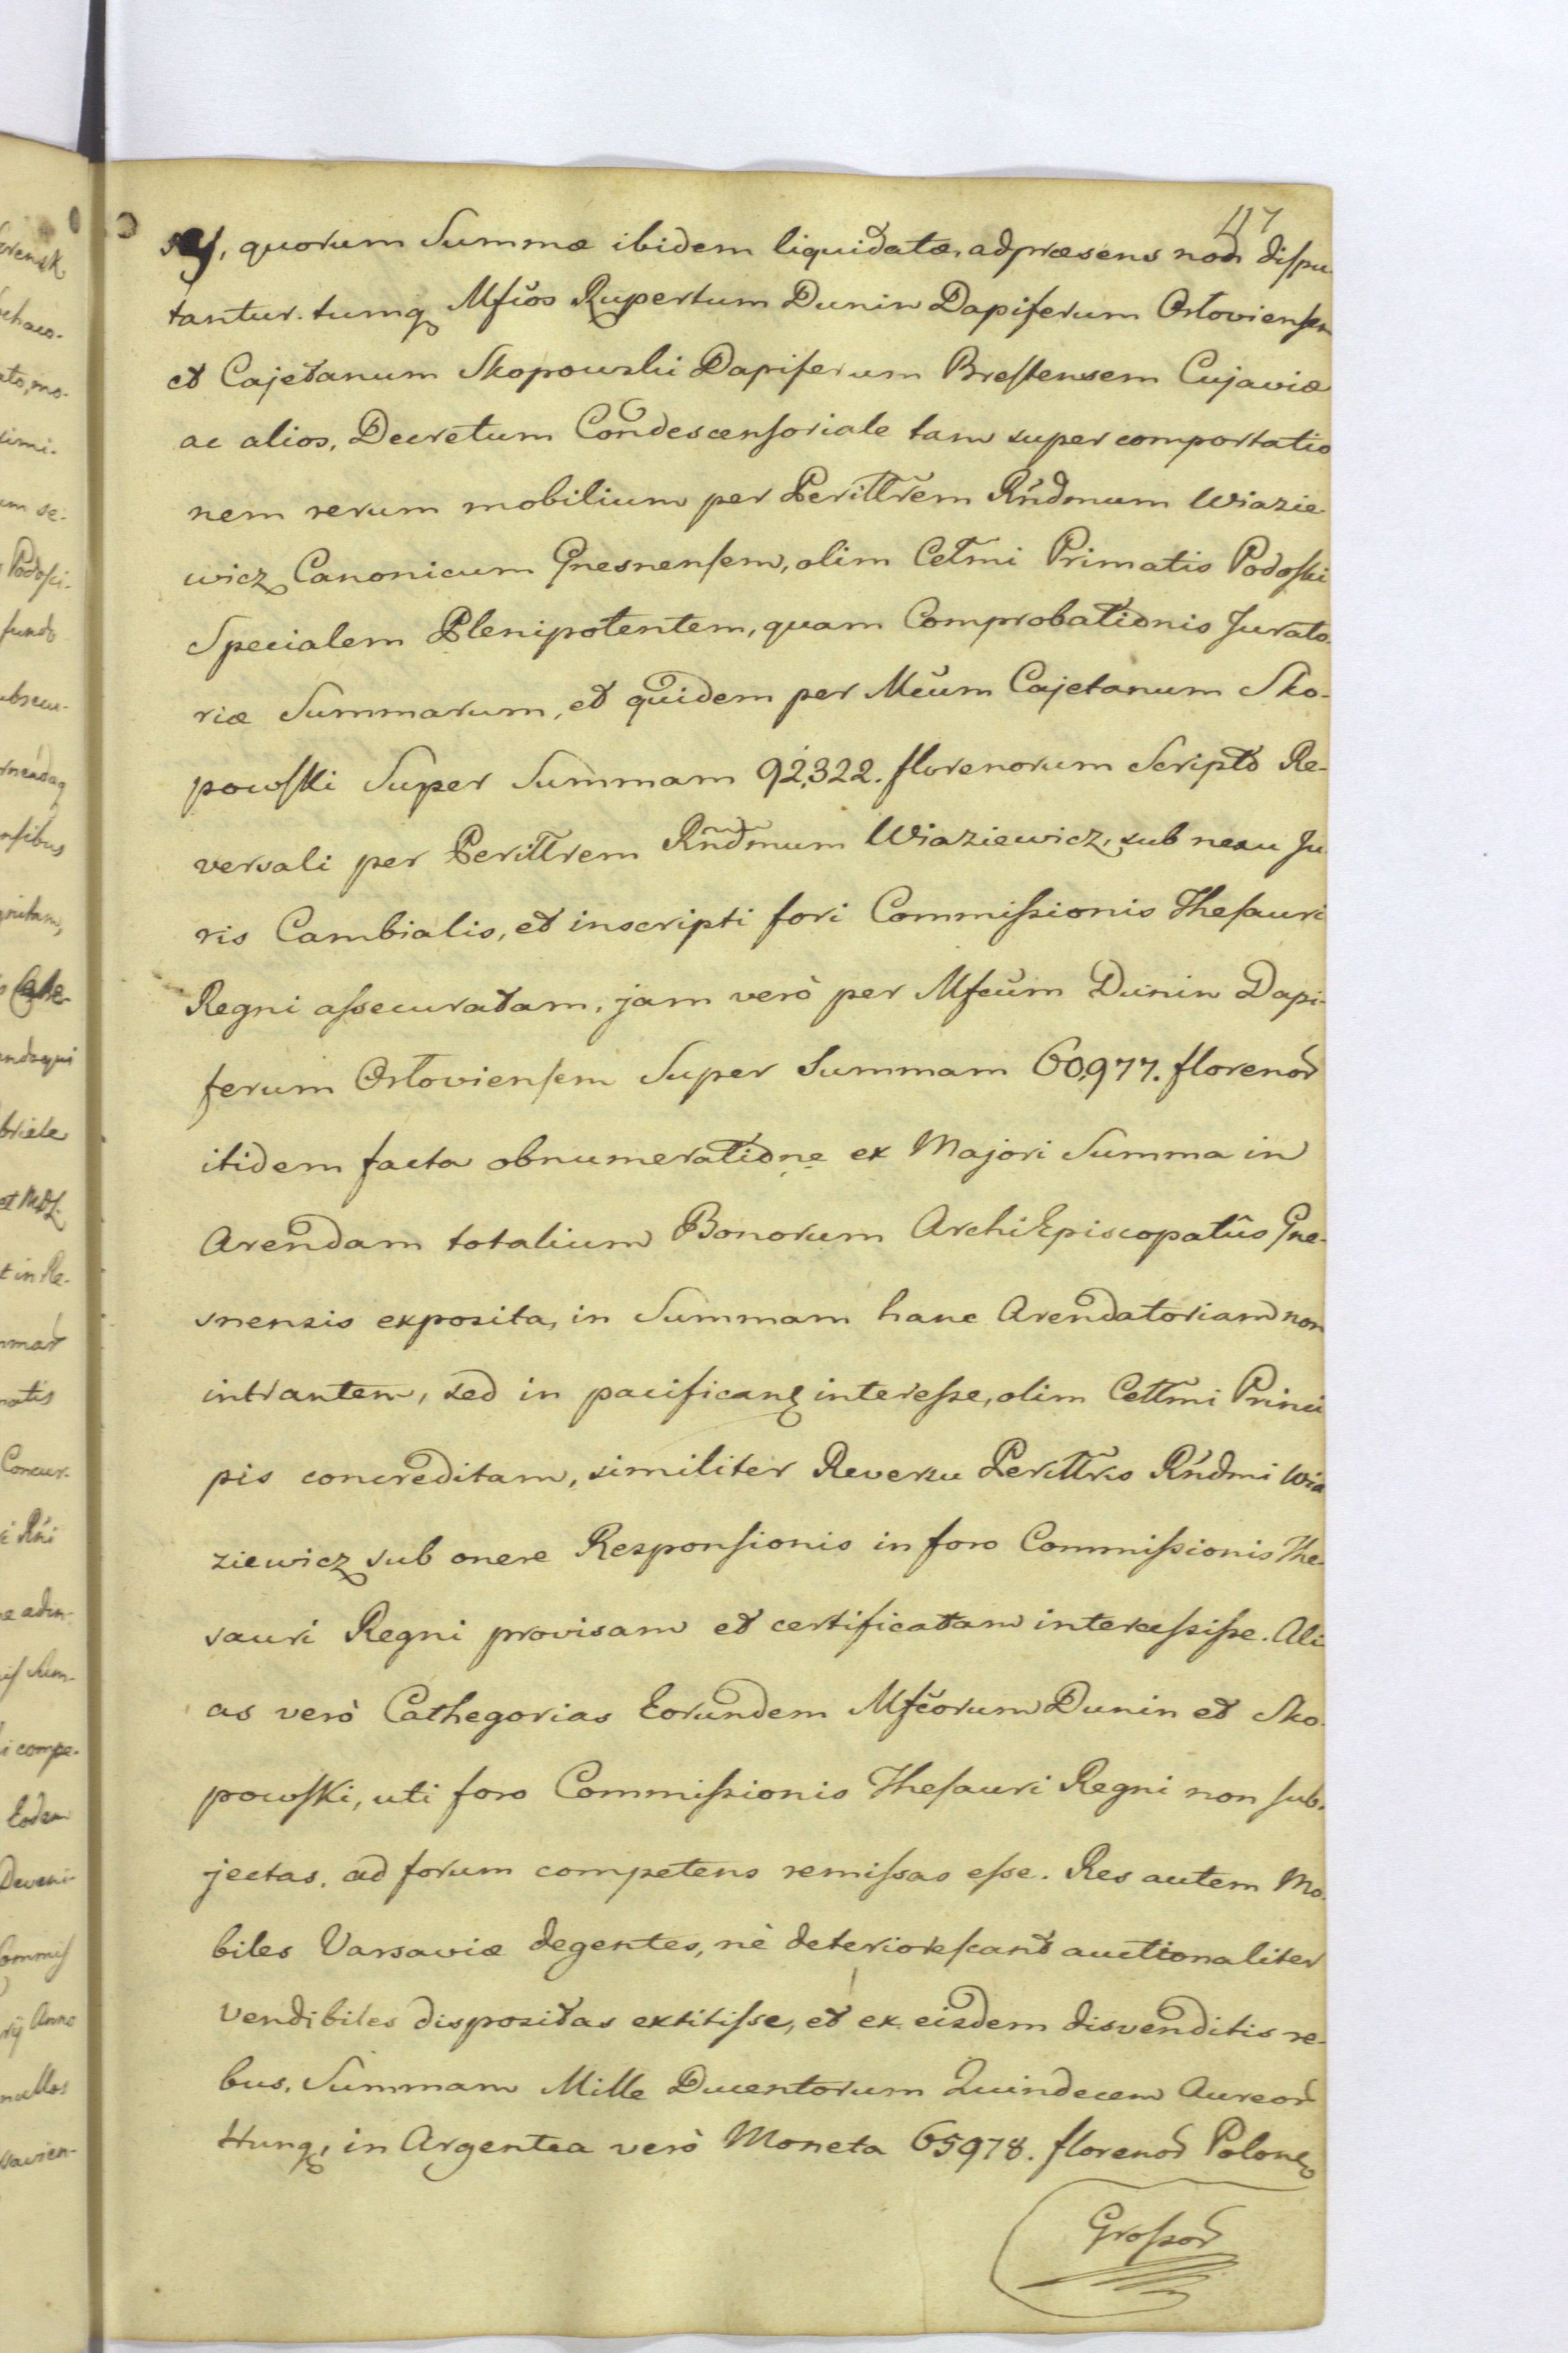 47
sy, quorum Summæ ibidem liquidatæ, adpræsens non dispu
tantur. tumq Mfĉos Rupertum Dunin Dapiferum Orłoviensem
et Cajetanum Skopowski Dapiferum Brestensem Cujaviæ
ac alios, Decretum Condescensoriale tam super comportatio
nem rerum mobilium per Perillr̃em Rñdmum Wiazie
wicz Canonicum Gnesnensem, olim Celm̃i Primatis Podoski
Specialem Plenipotentem, quam Comprobationis Jurato
riæ Summarum, et quidem per Mcũm Cajetanum Sko-
powski Super Summam 92,322. florenorum Scripto Re-
versali per Perillr̃em Rñdmum Wiaziewicz, sub nexu Ju
ris Cambialis, et inscripti fori Commissionis Thesauri
Regni assecuratam, jam verò per Mfcũm Dunin Dapi-
ferum Orłoviensem Super Summam 60,977. florenor
itidem facta obnumeratione ex Majori Summa in
Arendam totalium Bonorum ArchiEpiscopatûs Gne-
snensis exposita, in Summam hanc Arendatoriam non
intrantem, sed in pacificanq interesse, olim Cellm̃i Princi
pis concreditam, similiter Reversu Perillr̃is Rñdmi Wia
ziewicz sub onere Responsionis in foro Commissionis The-
sauri Regni provisam et certificatam intercessisse. Ali
as verò Cathegorias Eorundem Mfc̃orum Dunin et Sko-
powski, uti foro Commissionis Thesauri Regni non sub-
jectas, ad forum competens remissas esse. Res autem Mo-
biles Varsaviæ degentes, nè deteriorescant auctionaliter
vendibiles dispositas extitisse, et ex eisdem disvenditis re-
bus, Summam Mille Ducentorum Quindecem Aureor
Hung, in Argentea verò Moneta 65978. florenor Polonq
Grossor